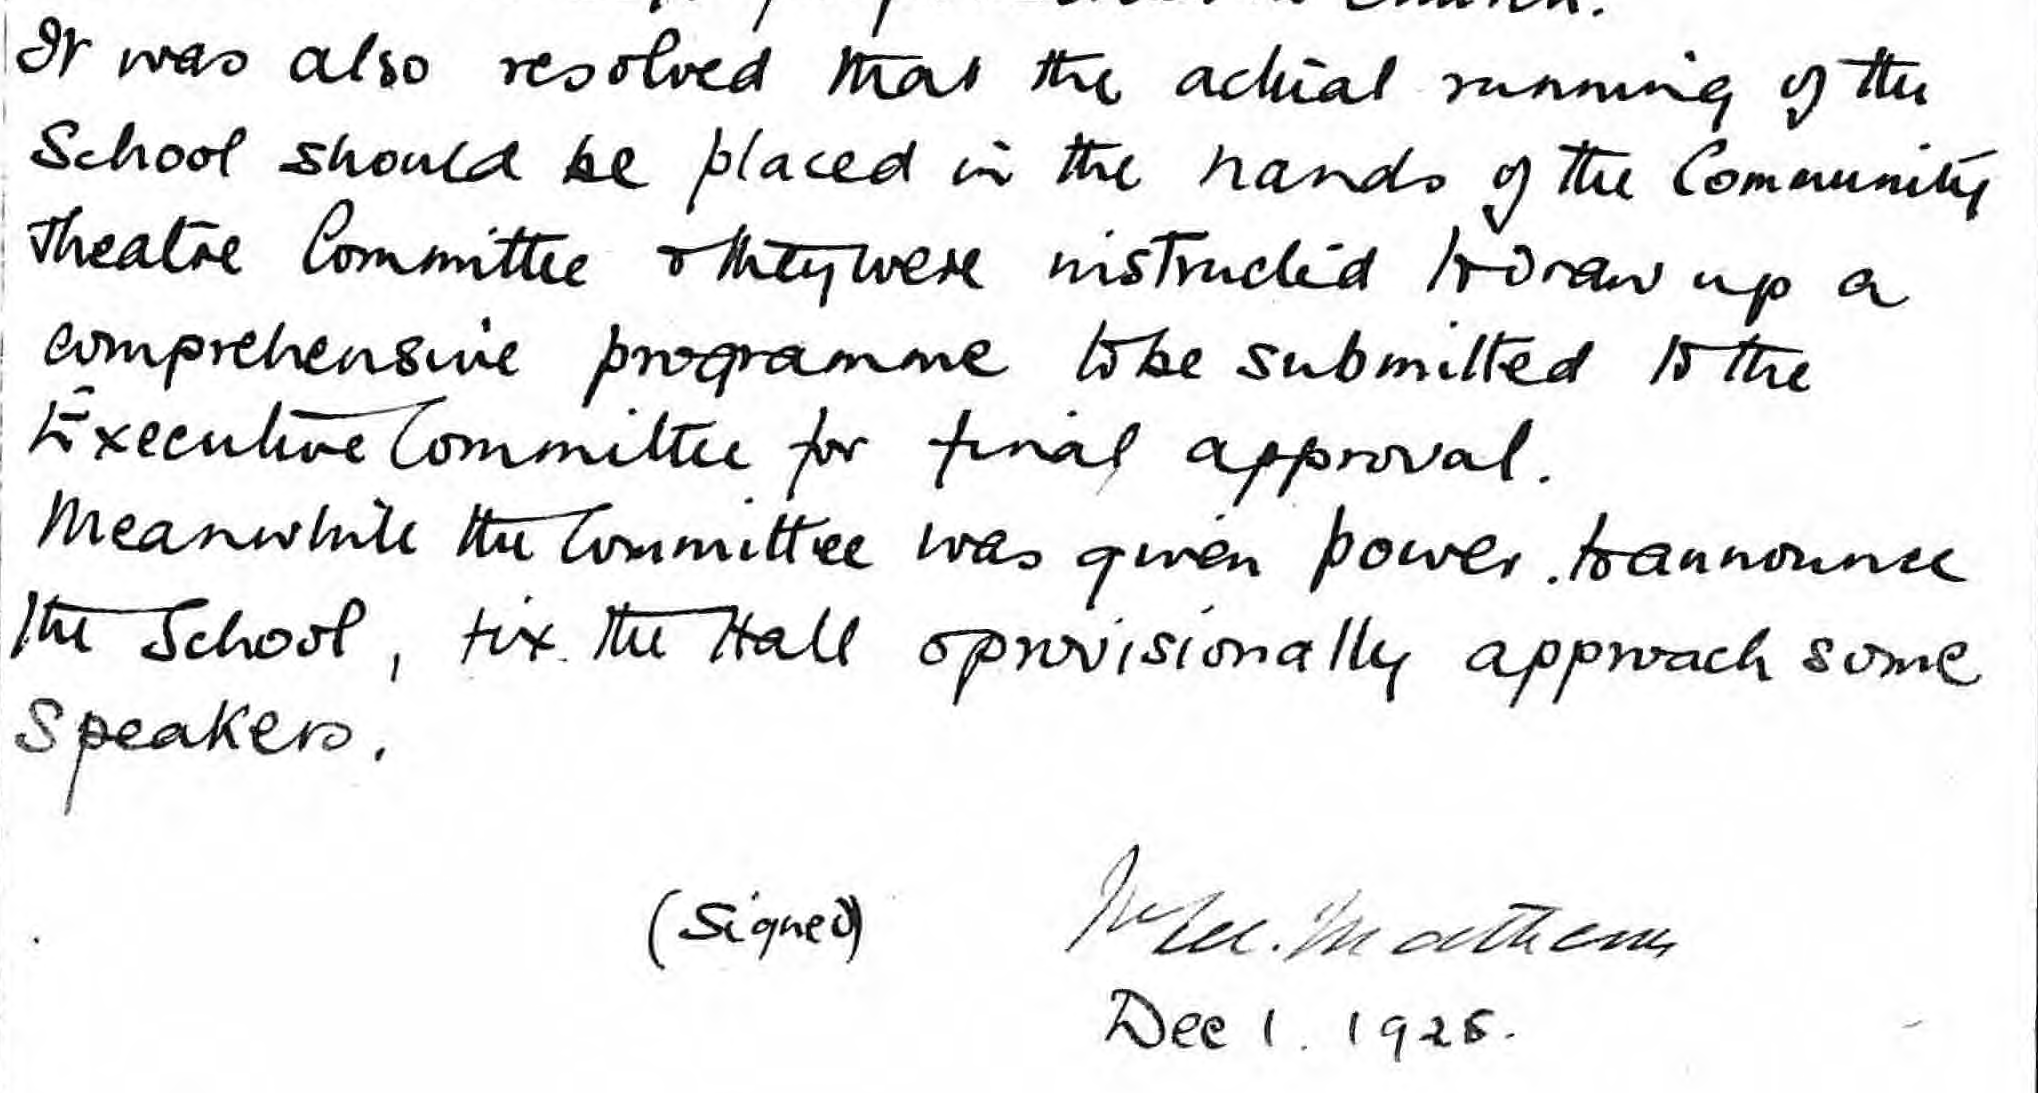 It was also resolved that the actual running of the
School should be placed in the hands of the Community
Theatre Committee & they were instructed to draw up a
comprehensive programme to be submitted to the
Executive Committee for final approval.
Meanwhile the Committee was given power to announce
the School, fix the Hall & provisionally approach some
Speakers.
(Signed) Mathews
Dec 1. 1925.